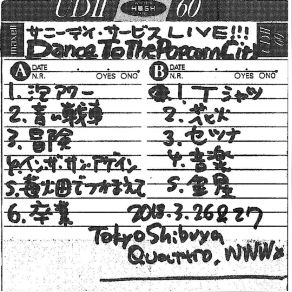 UDII HUSH 60
maxell
サニーデイ・サービス LIVE!!!
Dance To The Popcorn City
A DATE
N.R. OYES ONO
1. 泡アワー
2. 青い戦車
3. 冒険
4. イン・ザ・サン・アゲイン
5. 苺畑でつかまえて
6. 卒業
B DATE
N.R. OYES ONO
1. Tシャツ
2. 花火
3. セツナ
4. 音楽
5. 金星
2018.3.26&27
Tokyo Shibuya
Quattro, WWWx